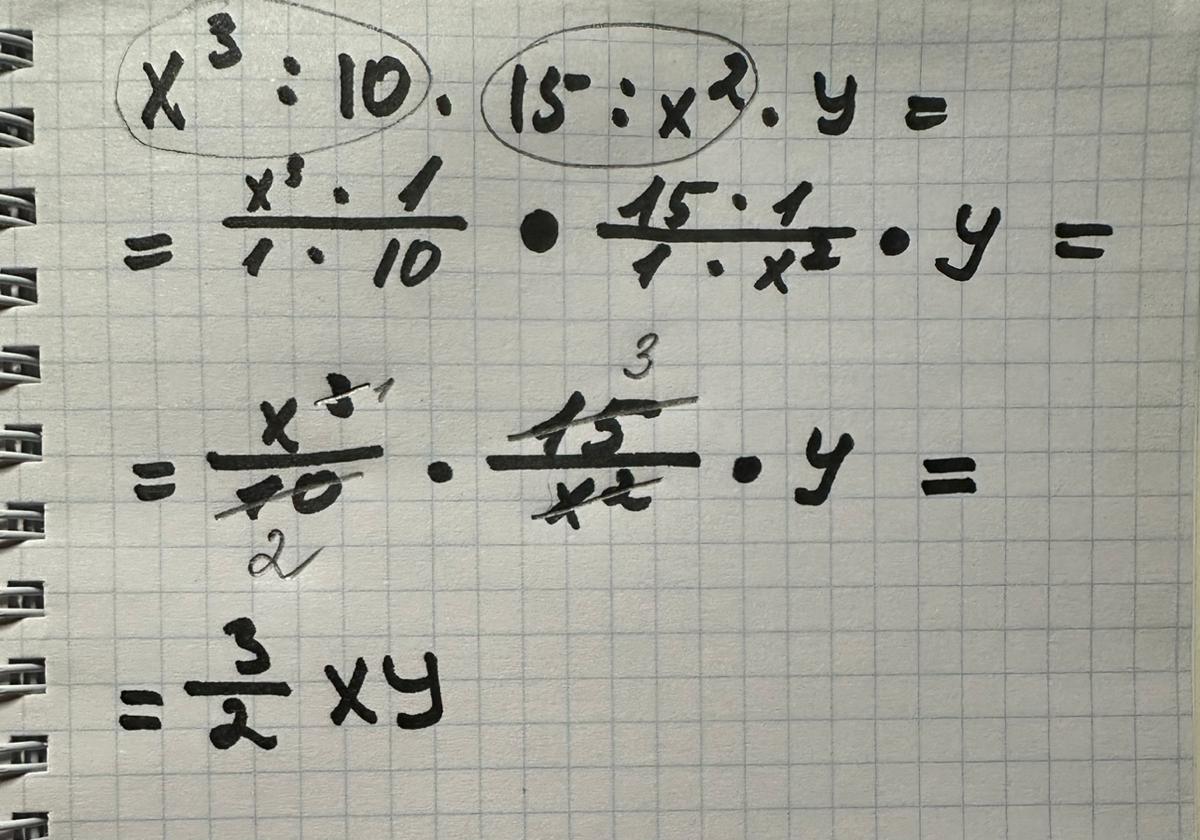 x³ : 10 · 15 : x² · y =
= x³ · 1 / 1 · 10 · 15 · 1 / 1 · x² · y =
3
= x³ ¹ / 10 · 15 / x² · y =
2
= 3/2 xy